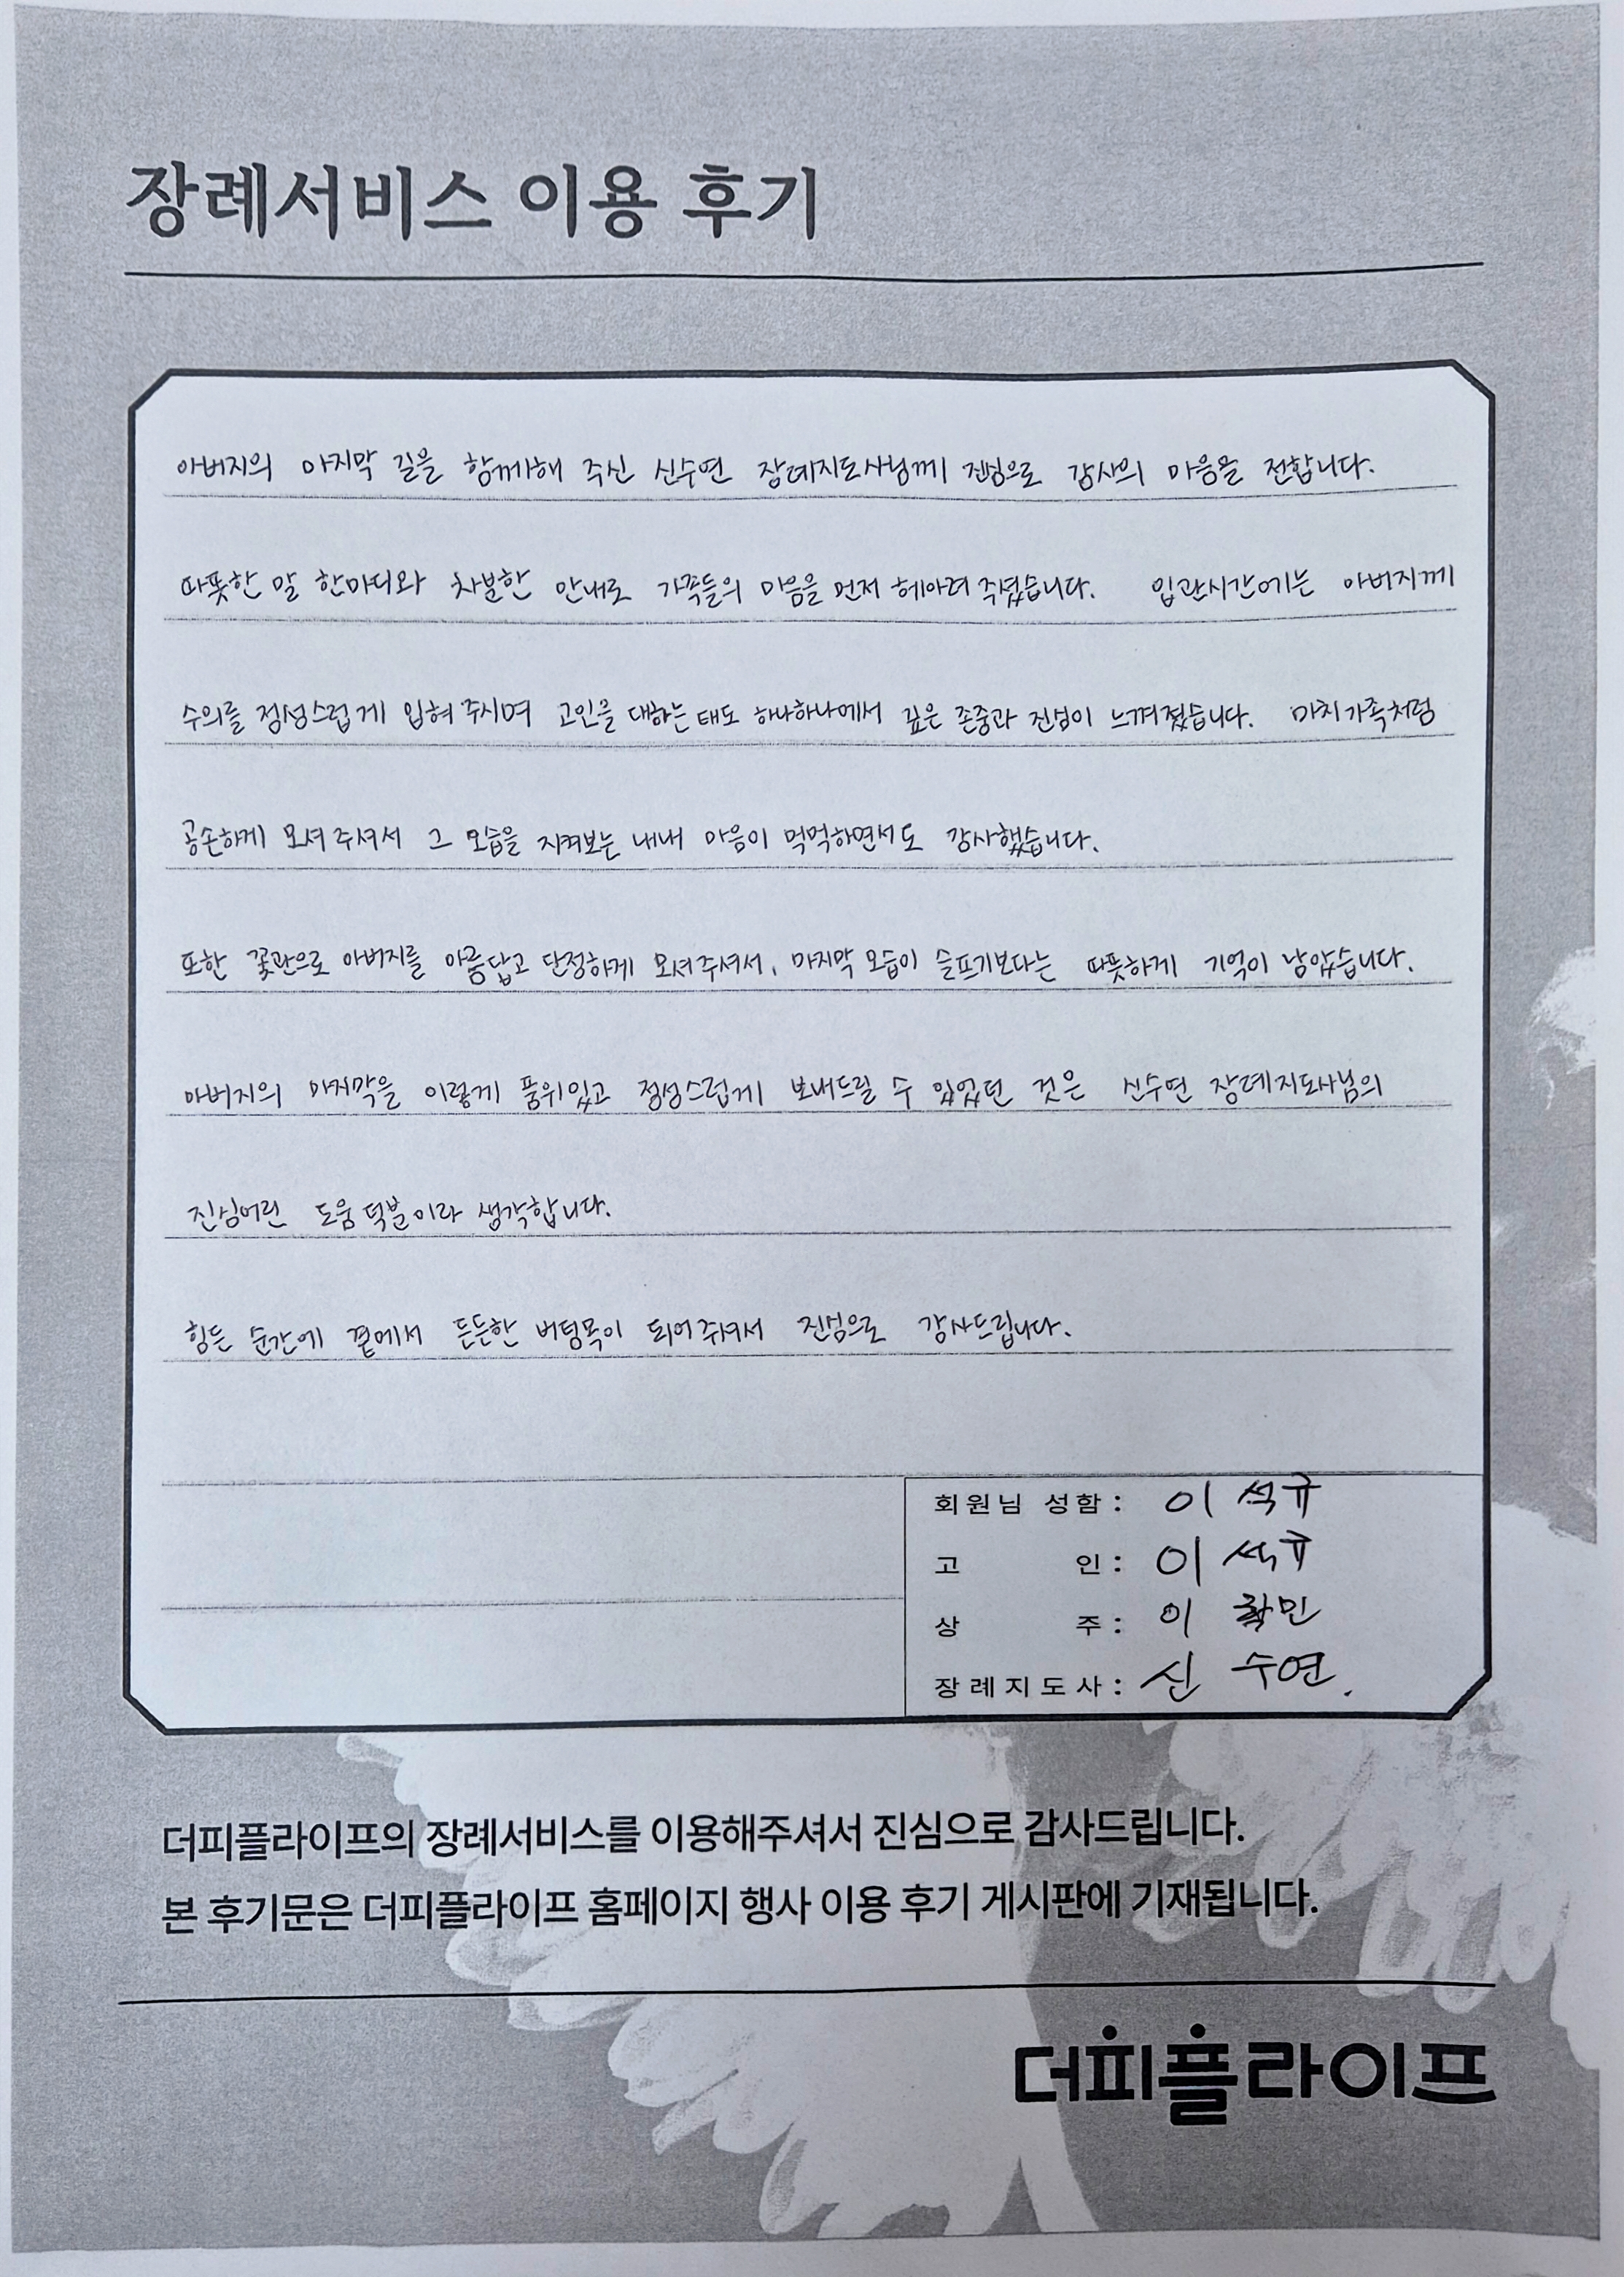 장례서비스 이용 후기
아버지의 마지막 길을 함께해 주신 신수연 장례지도사님께 진심으로 감사의 마음을 전합니다.
따뜻한 말 한마디와 차분한 안내로 가족들의 마음을 먼저 헤아려 주셨습니다. 입관시간에는 아버지께
수의를 정성스럽게 입혀 주시며 고인을 대하는 태도 하나하나에서 깊은 존중과 진심이 느껴졌습니다. 마치 가족처럼
공손하게 모셔 주셔서 그 모습을 지켜보는 내내 마음이 먹먹하면서도 감사했습니다.
또한 꽃관으로 아버지를 아름답고 단정하게 모셔주셔서, 마지막 모습이 슬프기보다는 따뜻하게 기억이 남았습니다.
아버지의 마지막을 이렇게 품위있고 정성스럽게 보내드릴 수 있었던 것은 신수연 장례지도사님의
진심어린 도움 덕분이라 생각합니다.
힘든 순간에 곁에서 든든한 버팀목이 되어 주셔서 진심으로 감사드립니다.
회원님 성함 : 이 석규
고 인 : 이 석규
상 주 : 이
장례지도사 : 신 수연.
더피플라이프의 장례서비스를 이용해주셔서 진심으로 감사드립니다.
본 후기문은 더피플라이프 홈페이지 행사 이용 후기 게시판에 기재됩니다.
더피플라이프